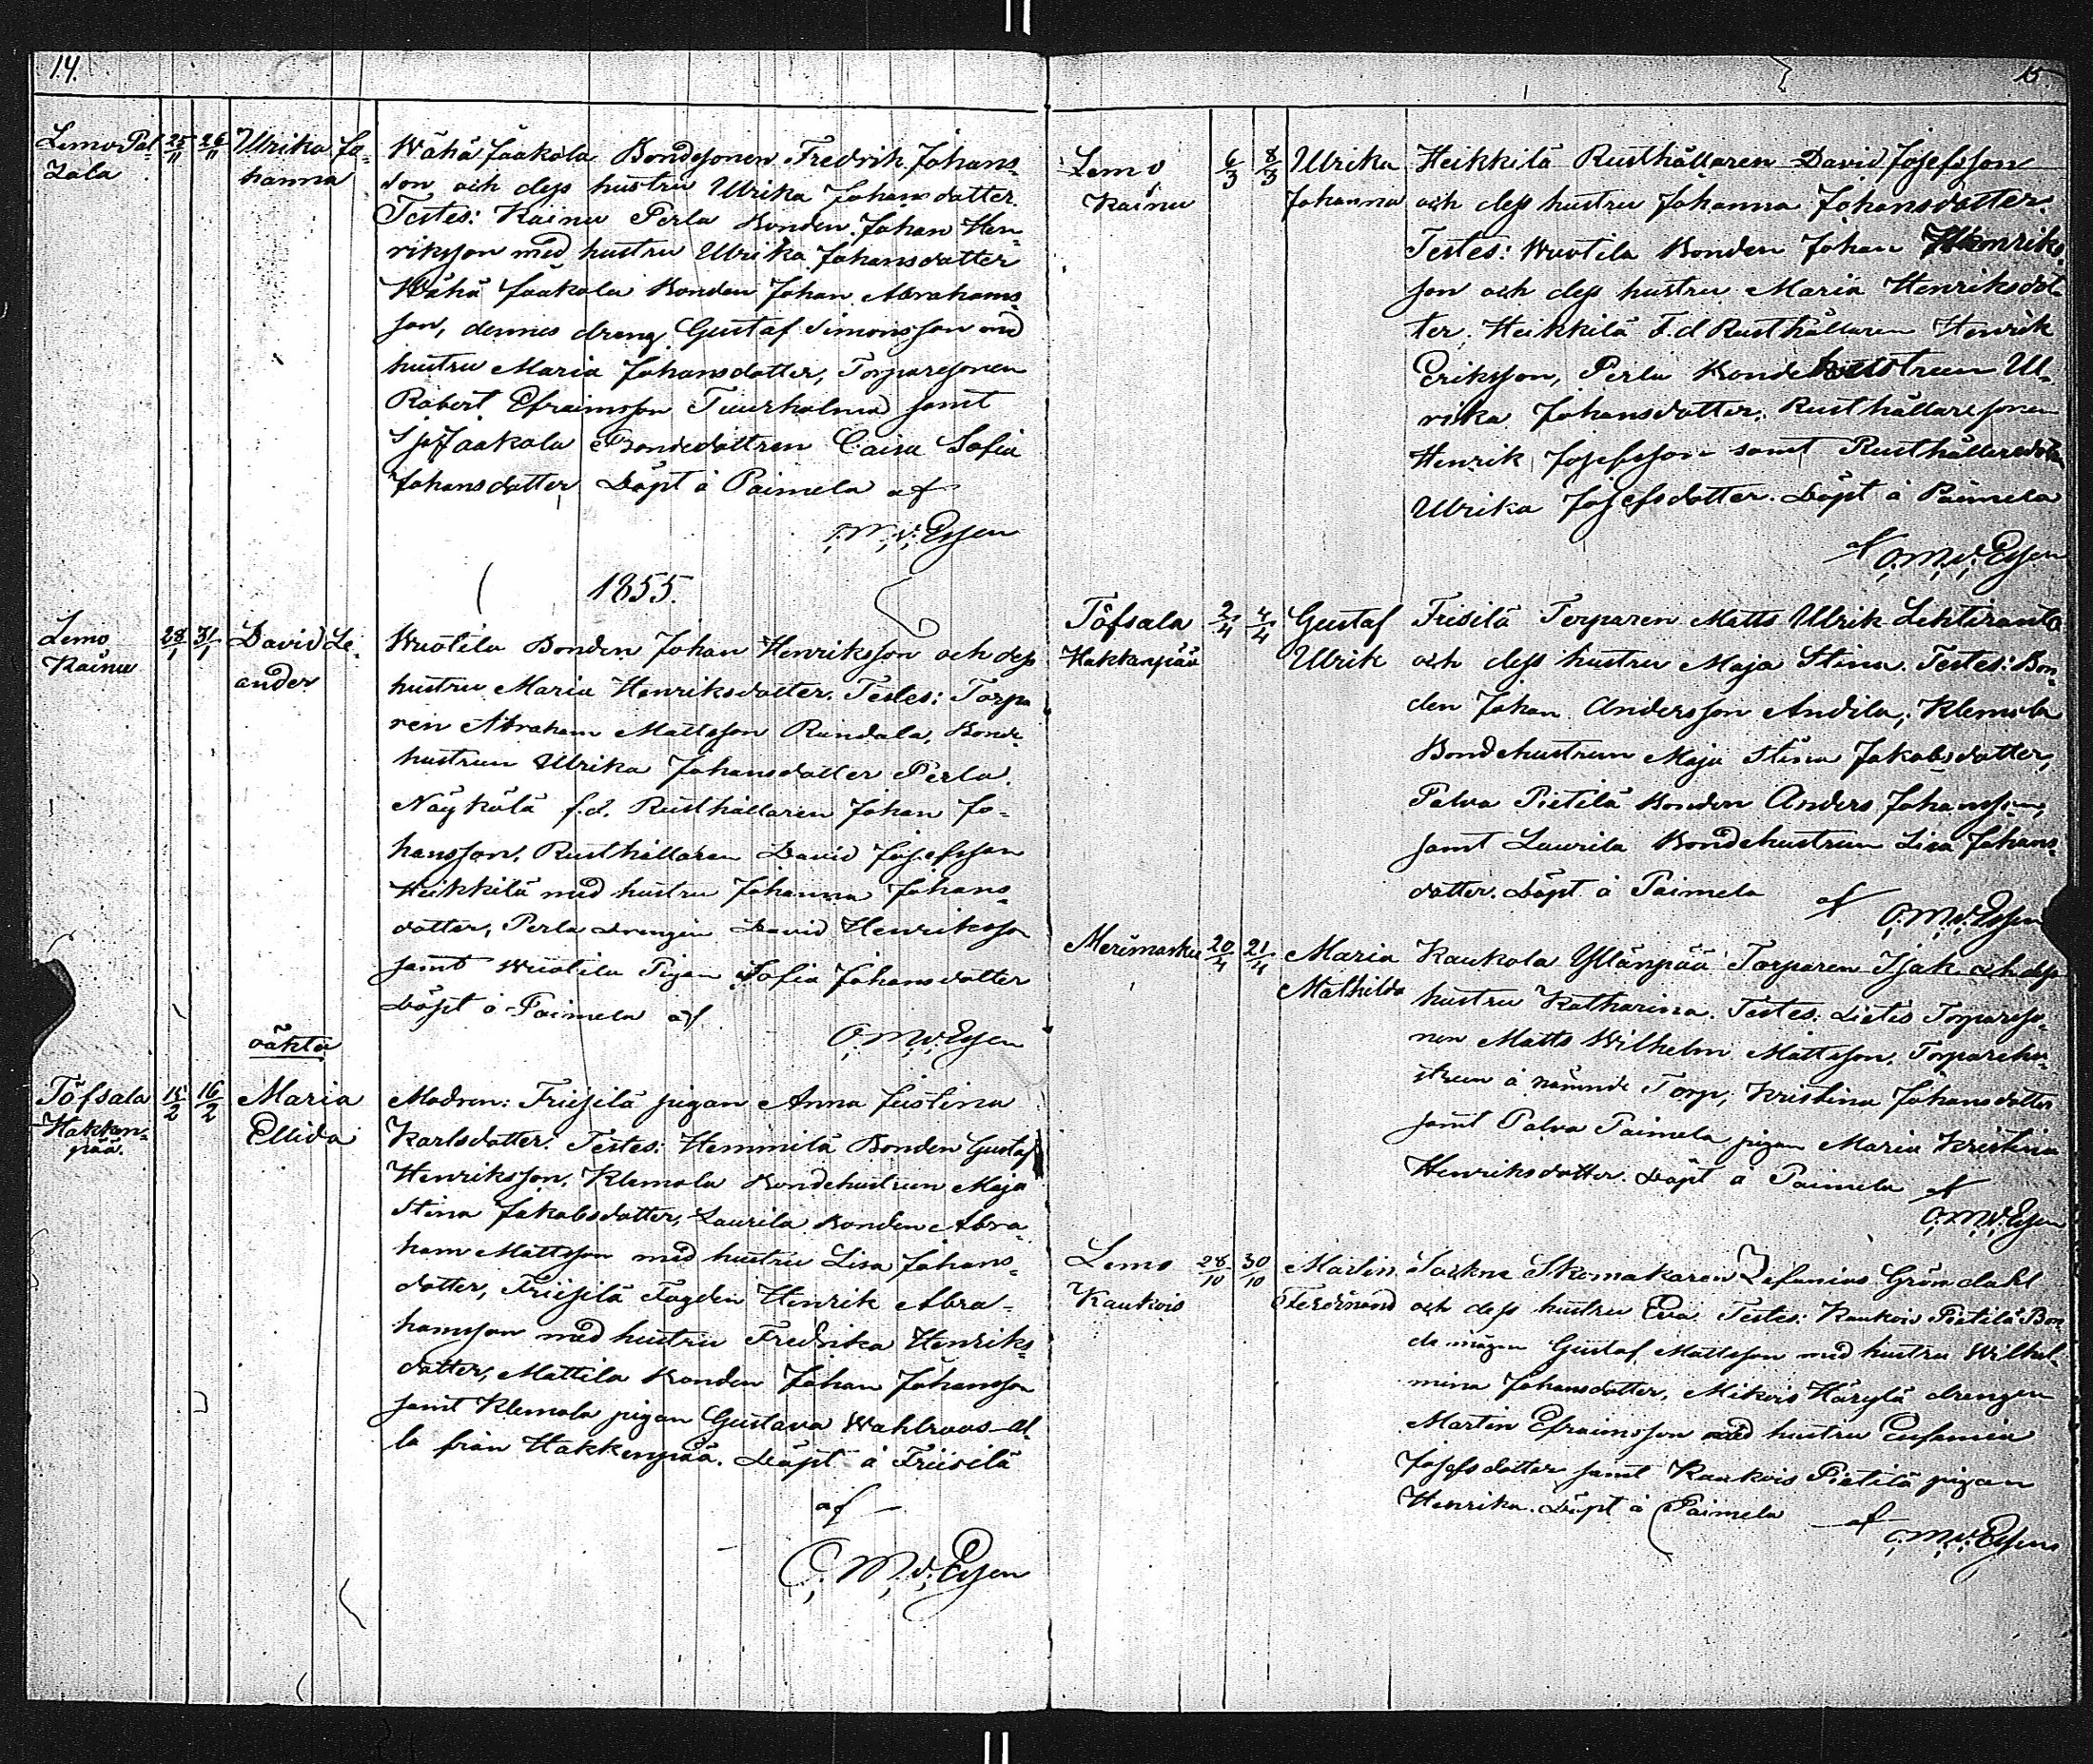 14.
Lemo Pal-
zala
25/11 26/11
Ulrika Jo-
hanna
Wähä Jaakola Bondesonen Fredrik Johans-
son och dess hustru Ulrika Johansdotter.
Testes: Kainu Perla Bonden Johan Hen-
riksson med hustru Ulrika Johansdotter
Wähä Jaakola Bonden Johan Abrahams-
son, dennes dreng Gustaf Simonsson med
hustru Maria Johansdotter, Torparesonen
Robert Efraimsson Tuurholma samt
Jaakola Bondedottren Caisa Sofia
Johansdotter Döpt å Paimela af
O. M. v. Essen
1855.
Lemo
Kainu
28/1 31/1
David Le-
ander
Wuotila Bonden Johan Henriksson och dess
hustru Maria Henriksdotter. Testes: Torpa
ren Abraham Mattsson Rundala, Bonde-
hustrun Ulrika Johansdotter Perla,
Näykälä f.d. Rusthållaren Johan Jo-
hansson, Rusthållaren David Josefsson
Heikkilä med hustru Johanna Johans-
dotter, Perla drengen David Henriksson
samt Wuotila Pigan Sofia Johansdotter
Döpt å Paimela af
O. M. v. Essen
oäkta
Töfsala
Hakken-
pää.
15/2 16/2
Maria
Ellida
Modren: Friisilä pigan Anna Justina
Karlsdotter. Testes: Hemmilä Bonden Gustaf
Henriksson, Klemola Bondehustrun Maja
Stina Jakobsdotter, Laurila Bonden Abra-
ham Mattsson med hustru Lisa Johans-
dotter, Friisilä Fogden Henrik Abra-
hamsson med hustru Fredrika Henriks-
dotter, Mattila Bonden Johan Johansson
samt Klemola pigan Gustava Wahlroos al-
la från Hakkenpää. Döpt å Friisilä
af
O. M. v. Essen
15
Lemo
Kainu
6/3 8/3
Ulrika
Johanna
Heikkilä Rusthållaren David Josefsson
och dess hustru Johanna Johansdotter.
Testes: Wuotila Bonden Johan Henriks-
son och dess hustru Maria Henriksdot-
ter, Heikkilä F.d Rusthållaren Henrik
Eriksson, Perla Bondehustrun Ul-
rika Johansdotter, Rusthållaresonen
Henrik Josefsson samt Rusthållaredottren
Ulrika Josefsdotter. Döpt å Paimela
af O. M. v. Essen
Töfsala
Hakkenpää
2/4 4/4
Gustaf
Ulrik
Frisilä Torparen Matts Ulrik Lehtiranta
och dess hustru Maja Stina. Testes: Bon-
den Johan Andersson Andila, Klemola
Bondehustrun Maja Stina Jakobsdotter,
Palva Pietilä Bonden Anders Johansson,
samt Laurila Bondehustrun Lisa Johans-
dotter. Döpt å Paimela
af O. M. v. Essen
Merimasku
20/4 21/4
Maria
Mathilda
Kaukola Yllänpää Torparen Isak och dess
hustru Katharina. Testes: Lietis Torpareso-
nen Matts Wilhelm Mattsson, Torparehu-
strun å nämnde Torp, Kristina Johansdotter
samt Palva Paimela pigan Maria Kristina
Henriksdotter. Döpt å Paimela af
O. M. v. Essen
Lemo
Kaukois
28/10 30/10
Martin
Ferdinand
Skomakaren Zefanias Gröndahl
och dess hustru Eva. Testes: Kaukois Pietilä Bon-
de mågen Gustaf Mattsson med hustru Wilhel-
mina Johansdotter, Mikois Härylä drengen
Martin Efraimsson med hustru Eufemia
Josefsdotter samt Kaukois Pietilä pigan
Henrika. Döpt å Paimela
af O. M. v. Essen